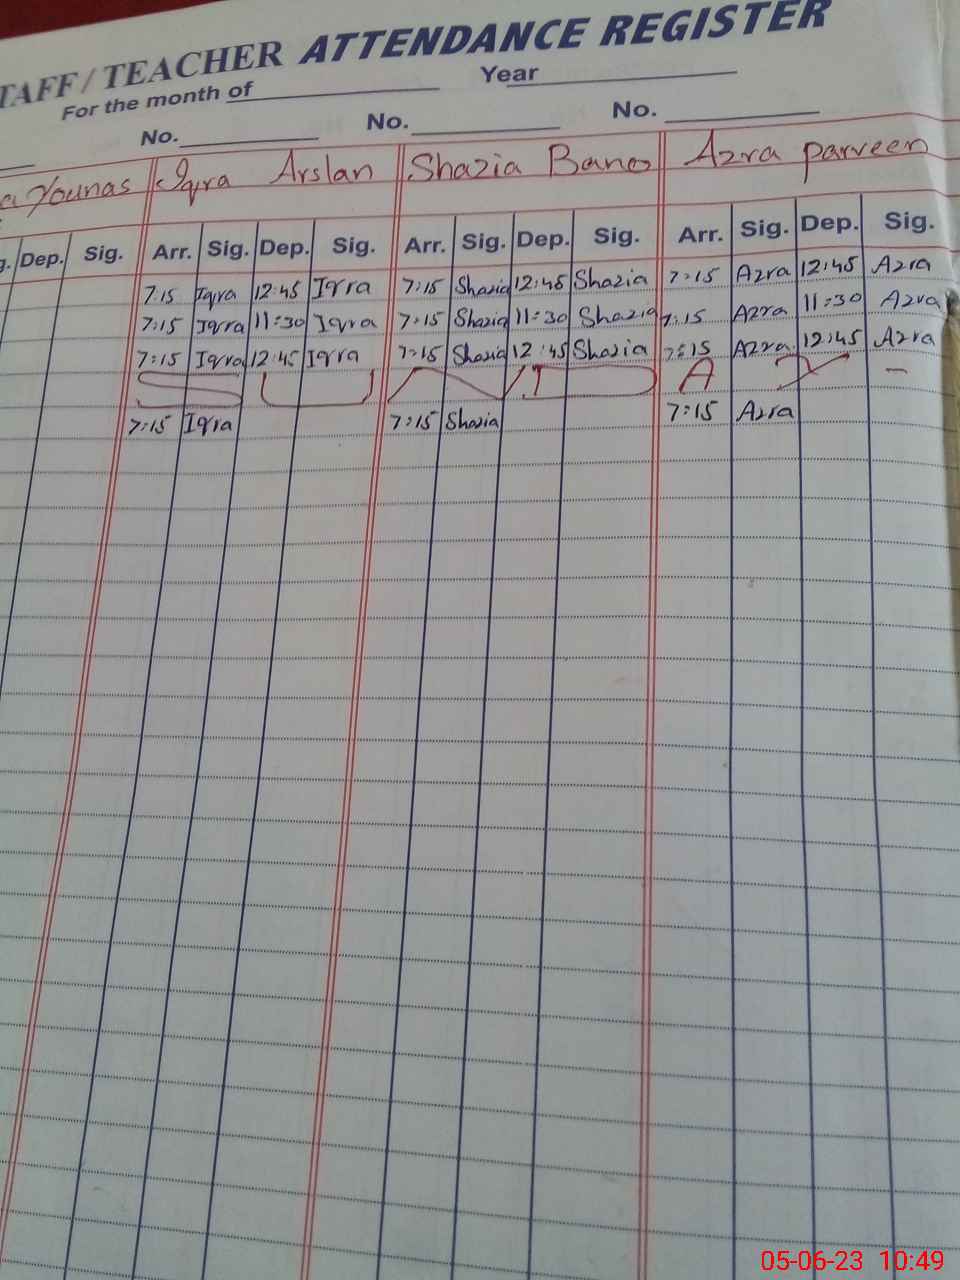 TAFF/TEACHER ATTENDANCE REGISTER
For the month of Year
No. No. No.
a Younas Iqra Arslan Shazia Bano Azra parveen
g. Dep. Sig. Arr. Sig. Dep. Sig. Arr. Sig. Dep. Sig. Arr. Sig. Dep. Sig.
7:15 Iqra 12:45 Iqra 7:15 Shazia 12:45 Shazia 7:15 Azra 12:45 Azra
7:15 Iqra 11:30 Iqra 7:15 Shazia 11:30 Shazia 7:15 Azra 11:30 Azra
7:15 Iqra 12:45 Iqra 7:15 Shazia 12:45 Shazia 7:15 Azra 12:45 Azra
S U N D A Y -
7:15 Iqra 7:15 Shazia 7:15 Azra
05-06-23 10:49